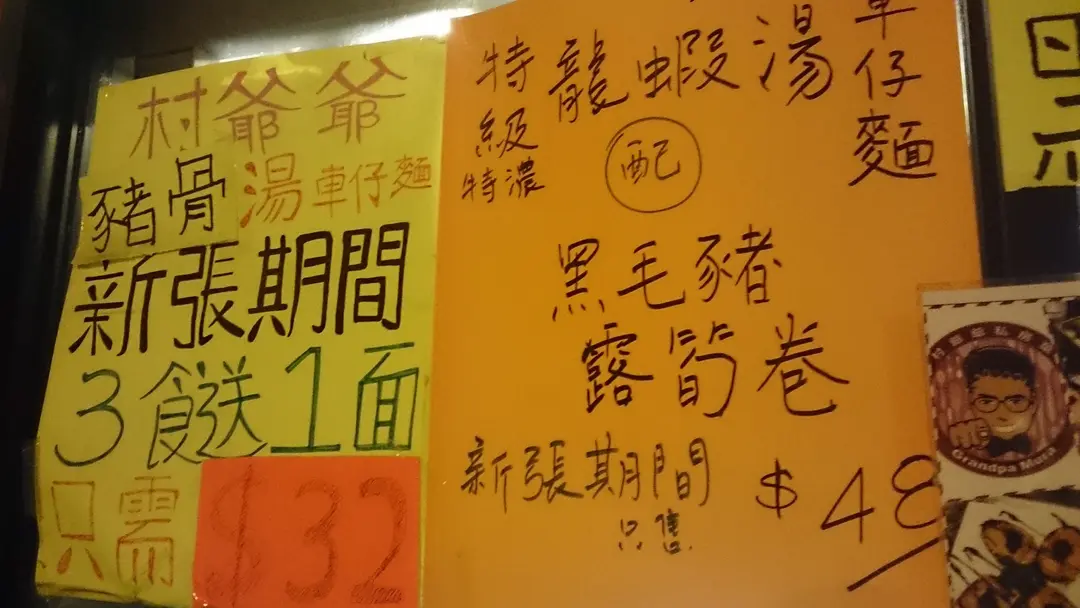 村爺爺
豬骨湯車仔麵
新張期間
3餸送1面
只需
$32
特級特濃
龍蝦湯
車仔麵
配
黑毛豬
露筍卷
新張期間
只售
$48
Grandpa Mata